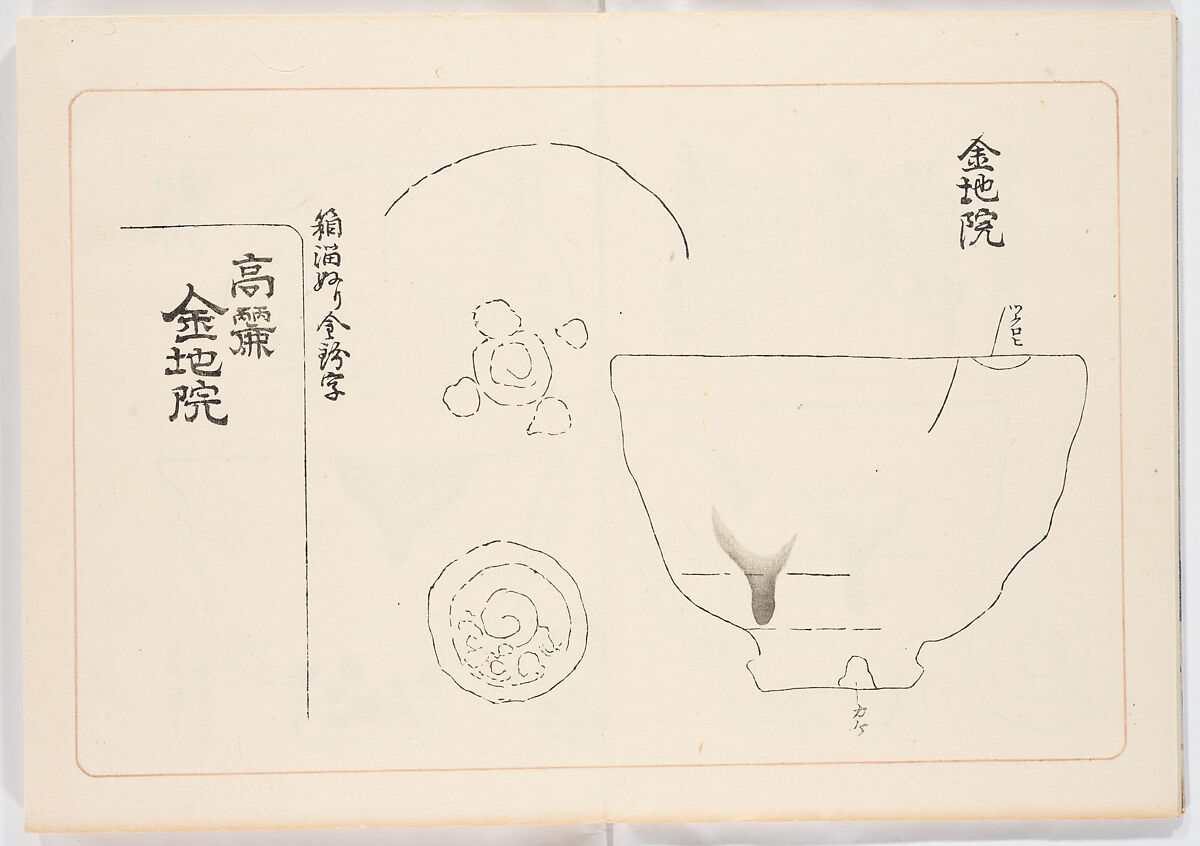 金地院
ツクロヒ
カケ
箱溜ぬり金粉字
高麗
金地院